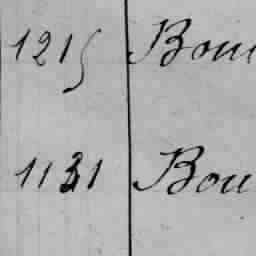 1215 Bou
1131 Bou